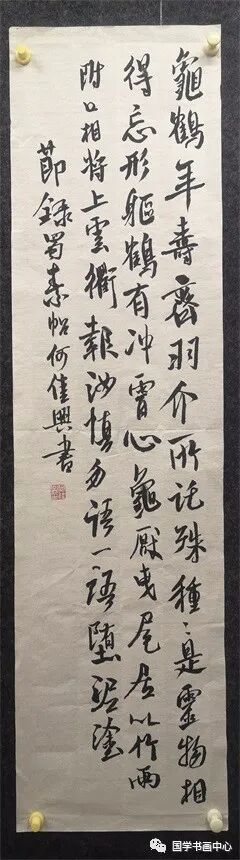 龜鶴年壽齊羽介所託殊種〻是靈物相
得忘形軀鶴有冲霄心龜厭曳尾居以竹兩
附口相將上雲衢報汝慎勿語一語墮泥塗
節錄蜀素帖何佳興書
国学书画中心